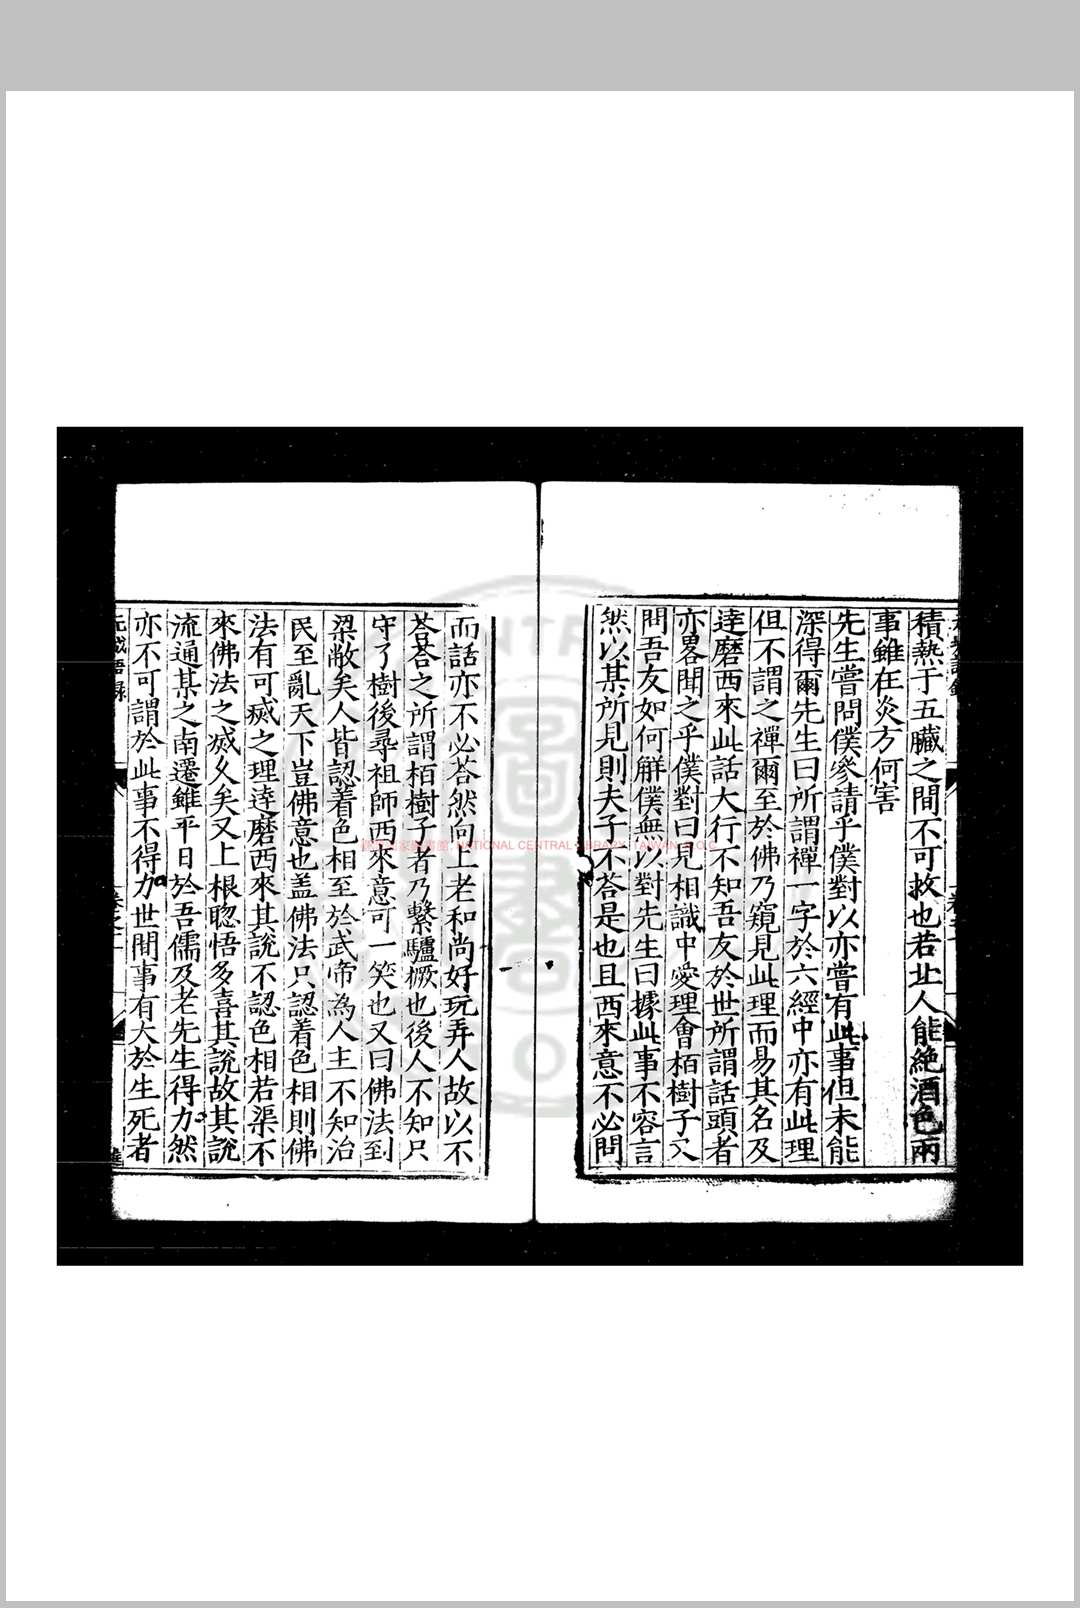 積熱于五臟之間不可救也若北人能絶酒色兩
事雖在炎方何害
先生嘗問僕參請乎僕對以亦嘗有此事但未能
深得爾先生曰所謂禪一字於六經中亦有此理
但不謂之禪爾至於佛乃窺見此理而易其名及
達磨西來此話大行不知吾友於世所謂話頭者
亦畧聞之乎僕對曰見相識中愛理會栢樹子又
問吾友如何解僕無以對先生曰據此事不容言
然以某所見則夫子不荅是也且西來意不必問
而話亦不必荅然向上老和尚好玩弄人故以不
荅荅之所謂栢樹子者乃繫驢橛也後人不知只
守了樹後尋祖師西來意可一笑也又曰佛法到
梁敝矣人皆認着色相至於武帝為人主不知治
民至亂天下豈佛意也盖佛法只認着色相則佛
法有可㓕之理達磨西來其說不認色相若渠不
來佛法之㓕久矣又上根聪悟多喜其說故其說
流通某之南遷雖平日於吾儒及老先生得力然
亦不可謂於此事不得力世間事有大於生死者
元城語錄
國家圖書館 NATIONAL CENTRAL LIBRARY, TAIWAN, R.O.C.